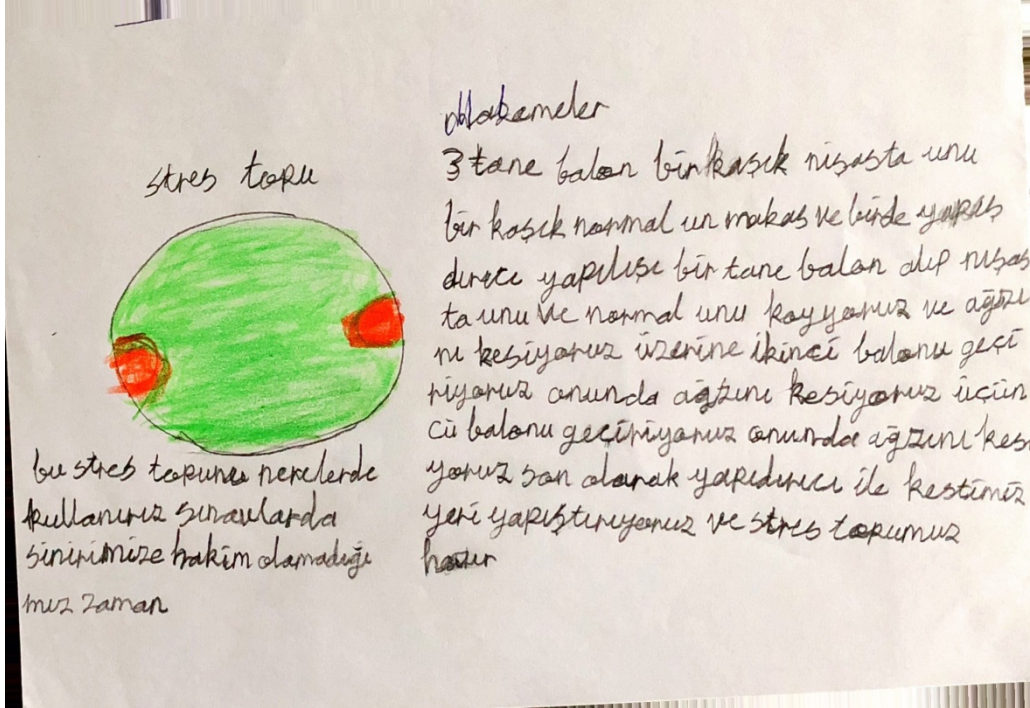 stres topu
bu stres topunu nerelerde
kullanırız sınavlarda
sinirimize hakim olamadığı
mız zaman
Malzameler
3 tane balon bir kaşık nişasta unu
bir kaşık normal un makas ve birde yapış
dırıcı yapılışı bir tane balon alıp nişas
ta unu ve normal unu koyyoruz ve ağzı
nı kesiyoruz üzerine ikinci balonu geçi
riyoruz onunda ağzını kesiyoruz üçün
cü balonu geçiriyoruz onunda ağzını kes
yoruz son olarak yapıdırıcı ile kestimiz
yeri yapıştırıyoruz ve stres topumuz
hazır